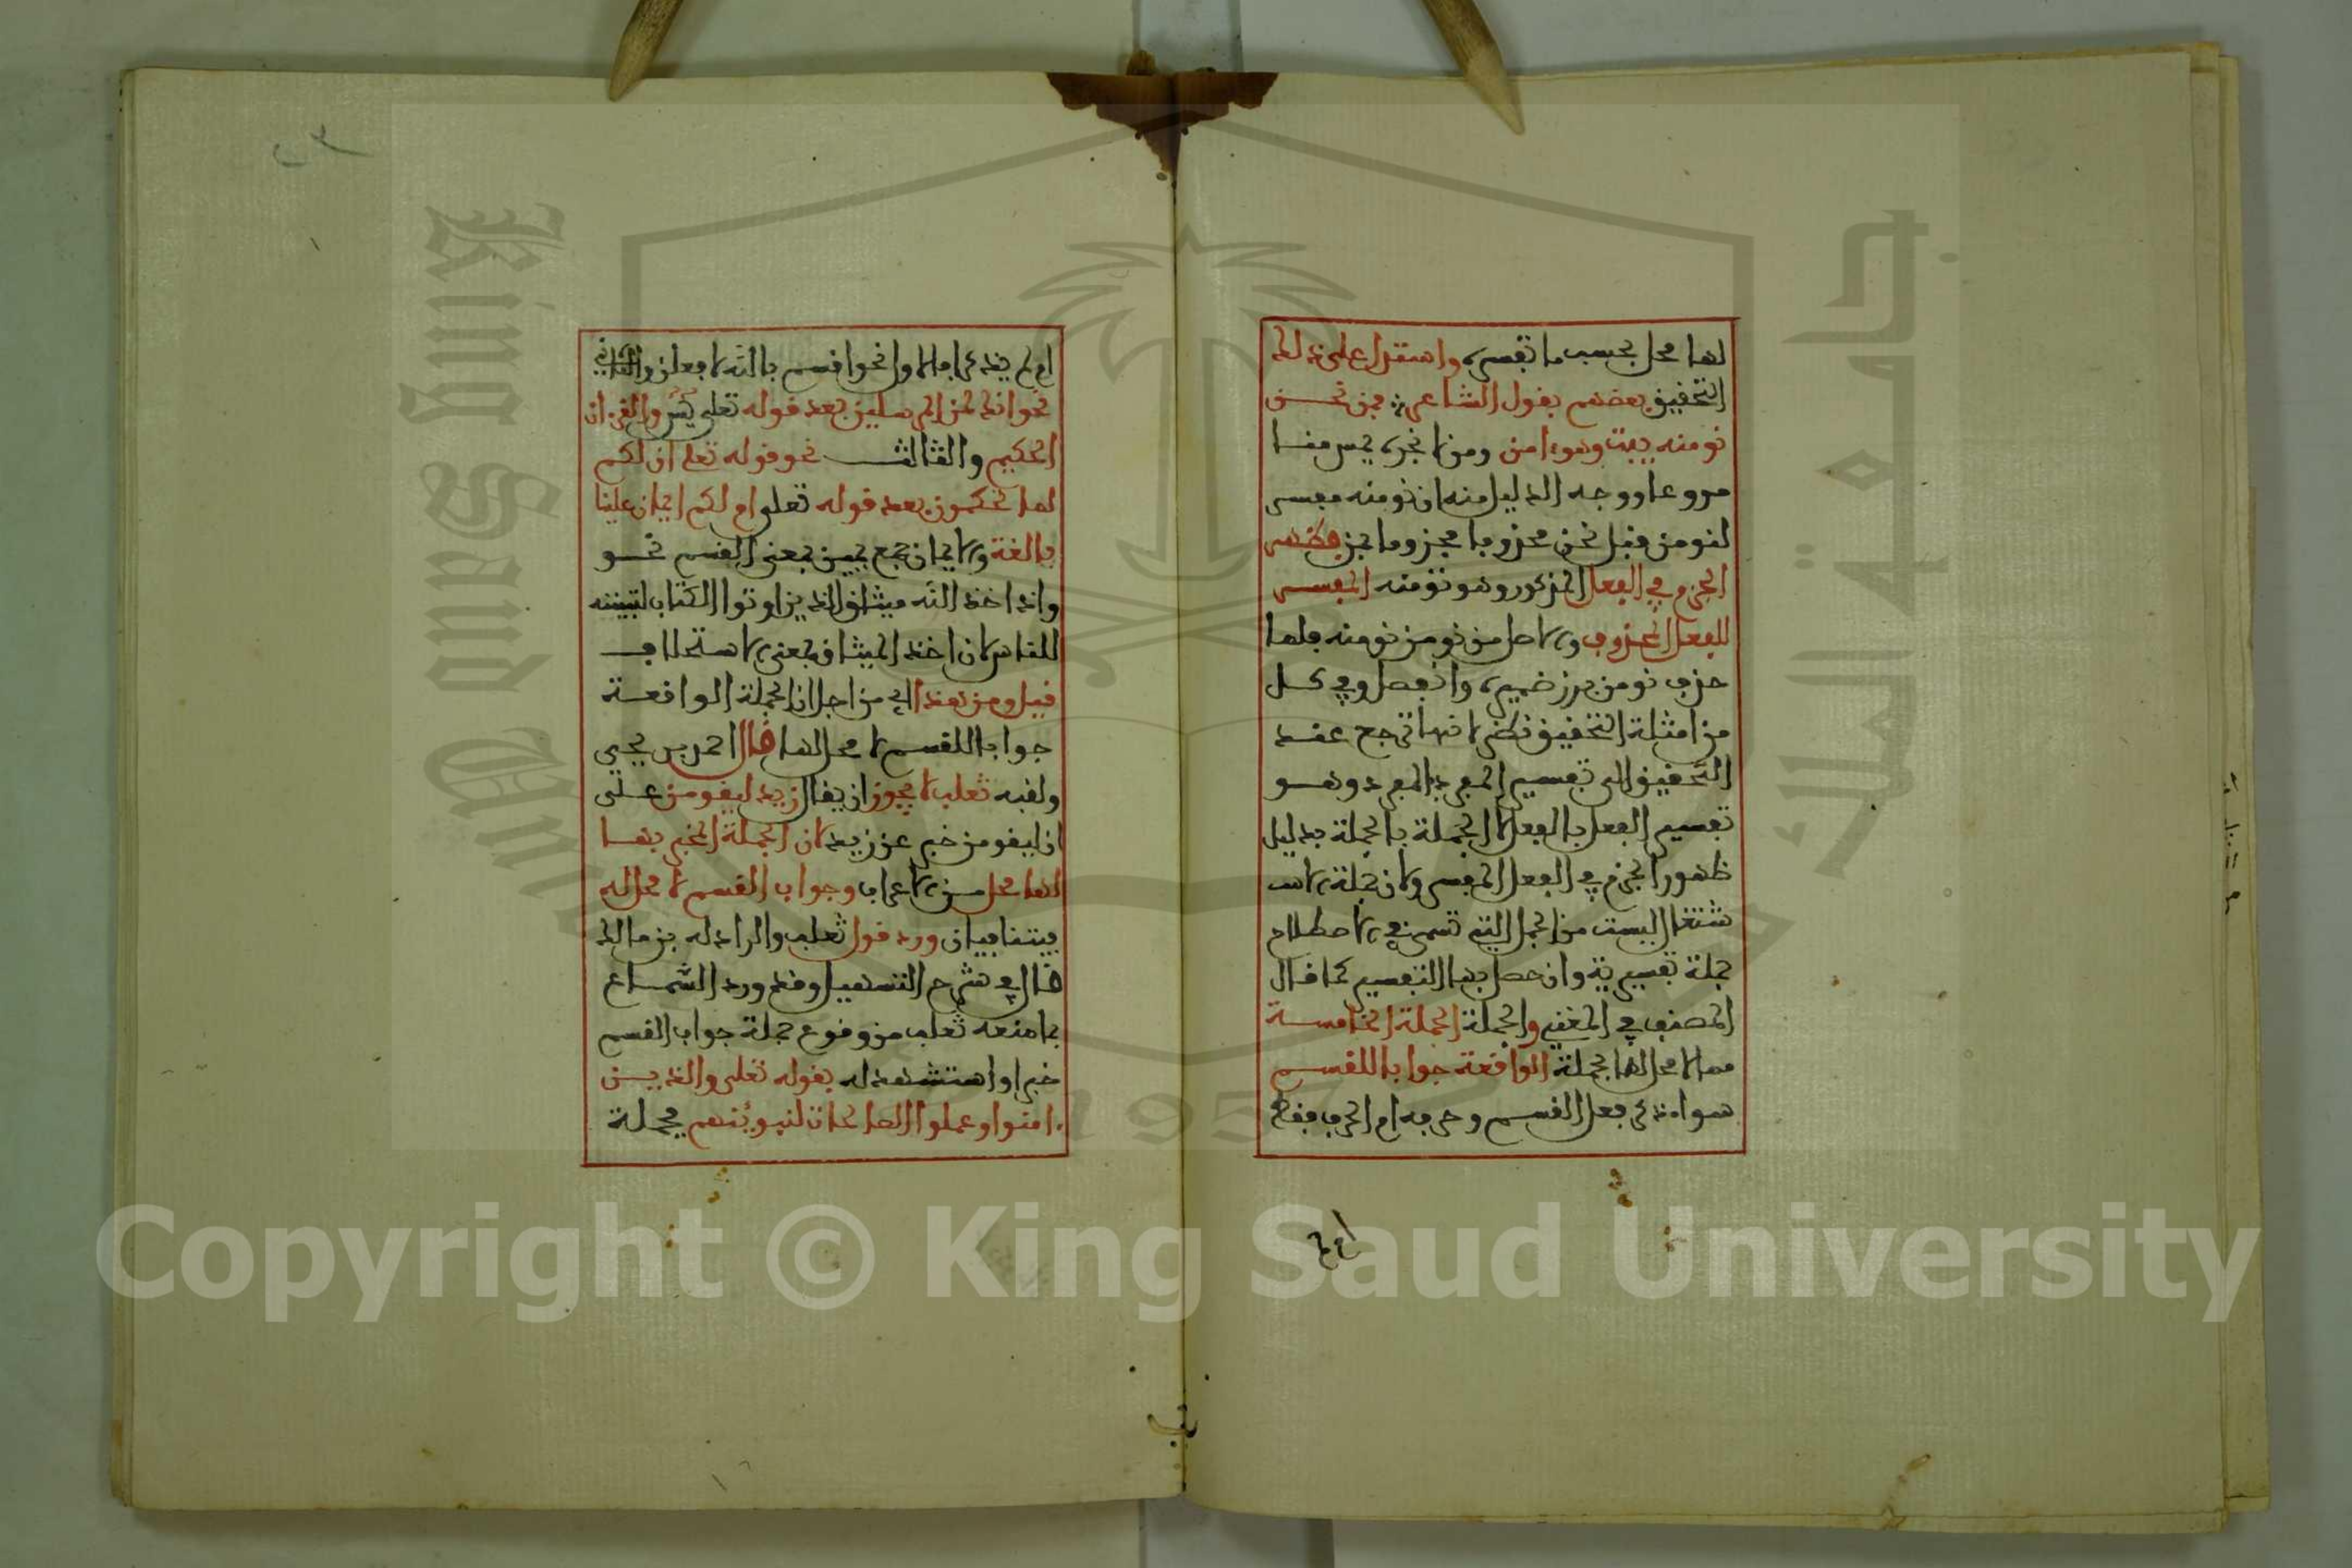 لها محل بحسب ما تفسره واستدل على ذلك
التحقيق بعضهم بقول الشاعر فمن نحن
نومنه يبت وهو ءامن ومن لا نجره يمس منا
مروعا ووجه الدليل منه ان نومنه مفسر
لنومن قبل نحن محذوفا مجزوما بمن
الجزم في الفعل المذكور وهو نومنه المفسر
للفعل المحذوف والاصل من نومن نومنه فلما
حذف نومن برز ضميره وانفصل وفي كل
من امثلة التحقيق نظر لانها ترجع عند
التحقيق الى تفسير المفرد بالمفرد وهو
تفسير الفعل بالفعل لا الجملة بالجملة بدليل
ظهور الجزم في الفعل المفسر ولان جملة الاشـ
ـتغال ليست من الجمل التي تسمى في الاصطلاح
جملة تفسيرية وان حصل بها التفسير كما قال
المصنف في المغني والجملة الجملة الخامسة
مما لا محل لها الجملة الواقعة جوابا للقسم
سوا ذكر فعل القسم وحرفه ام الحرف فقط
ام لم
ام لم يذكرا فالاول نحو اقسم بالله لافعلن والثاني
نحو انك لمن المرسلين بعد قوله تعلى يس والقرءان
الحكيم والثالث نحو قوله تعلى ان لكم
لما تحكمون بعد قوله تعلى ام لكم ايمان علينا
بالغة والايمان جمع يمين بمعنى القسم نحو
واذ اخذ الله ميثاق الذين اوتوا الكتاب لتبيننه
للناس لان اخذ الميثاق بمعنى الاستحلاف
قيل ومن هنا اي من اجل ان الجملة الواقعة
جوابا للقسم لا محل لها قال احمد بن يحيى
ولقبه ثعلب لا يجوز ان يقال زيد ليقومن على
ان ليقومن خبر عن زيد لان الجملة المخبر بها
لها محل من الاعراب وجواب القسم لا محل له
فيتنافيان ورد قول ثعلب والراد له بن مالك
قال في شرح التسهيل وقد ورد السماع
بما منعه ثعلب من وقوع جملة جواب القسم
خبرا واستشهد له بقوله تعلى والذين
ءامنوا وعملوا الصالحات لنبوئنهم فجملة
Copyright © King Saud University
King Saud University
جامعة الملك سعود
1957